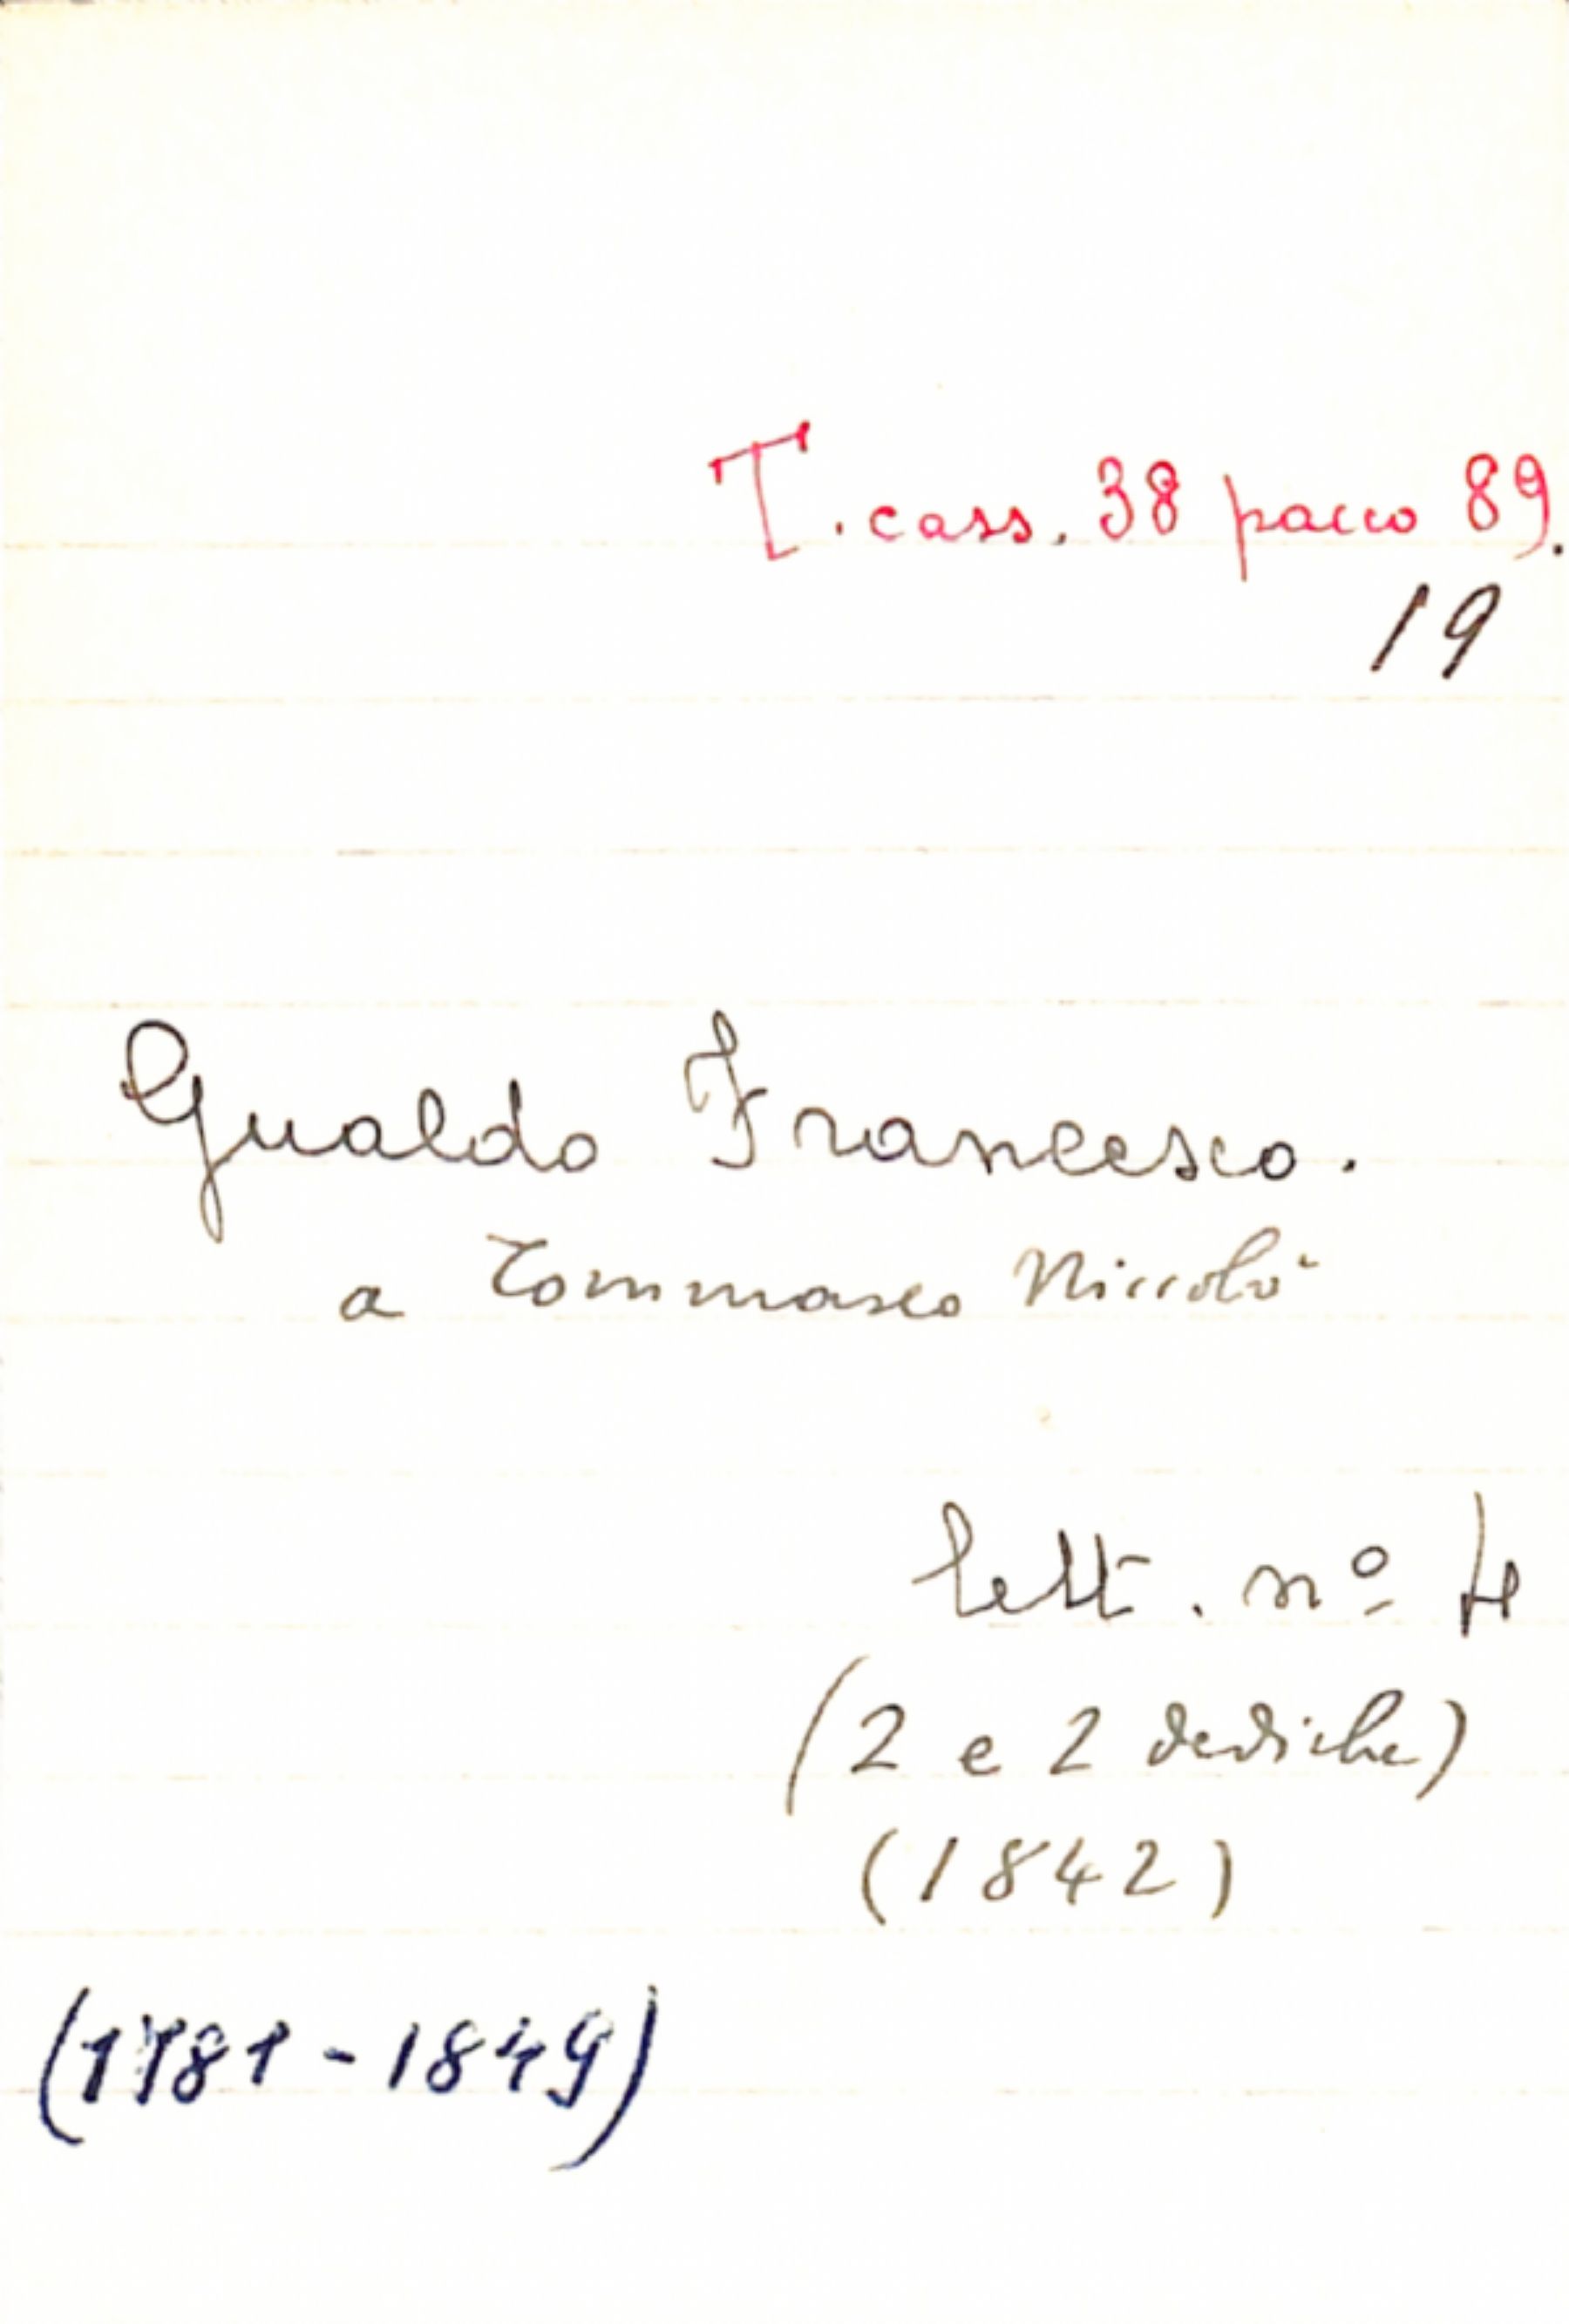 T. cass. 38 pacco 89.
19
Gualdo Francesco.
a Tommaseo Niccolò
lett. nº 4
(2 e 2 dediche)
(1842)
(1781-1849)